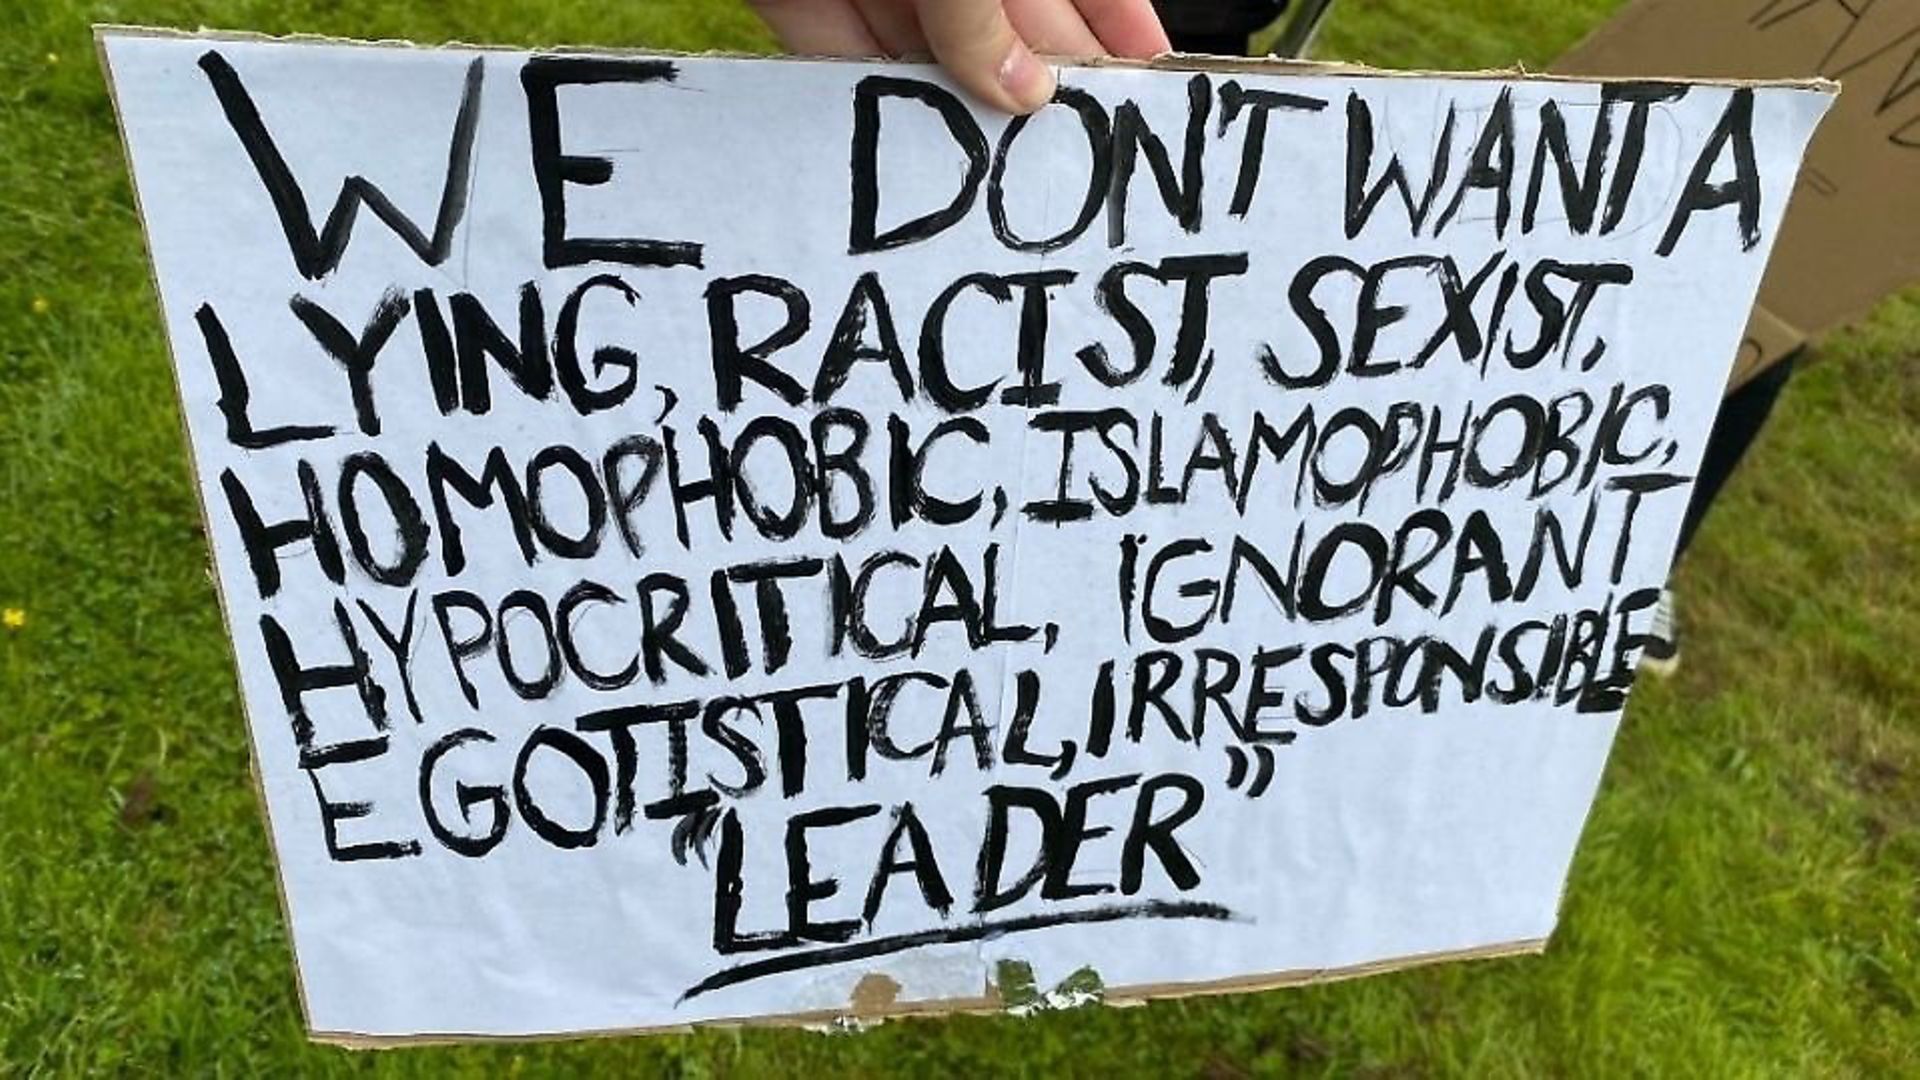 WE DON'T WANT A
LYING, RACIST, SEXIST,
HOMOPHOBIC, ISLAMOPHOBIC,
HYPOCRITICAL, IGNORANT
EGOTISTICAL, IRRESPONSIBLE
"LEADER"